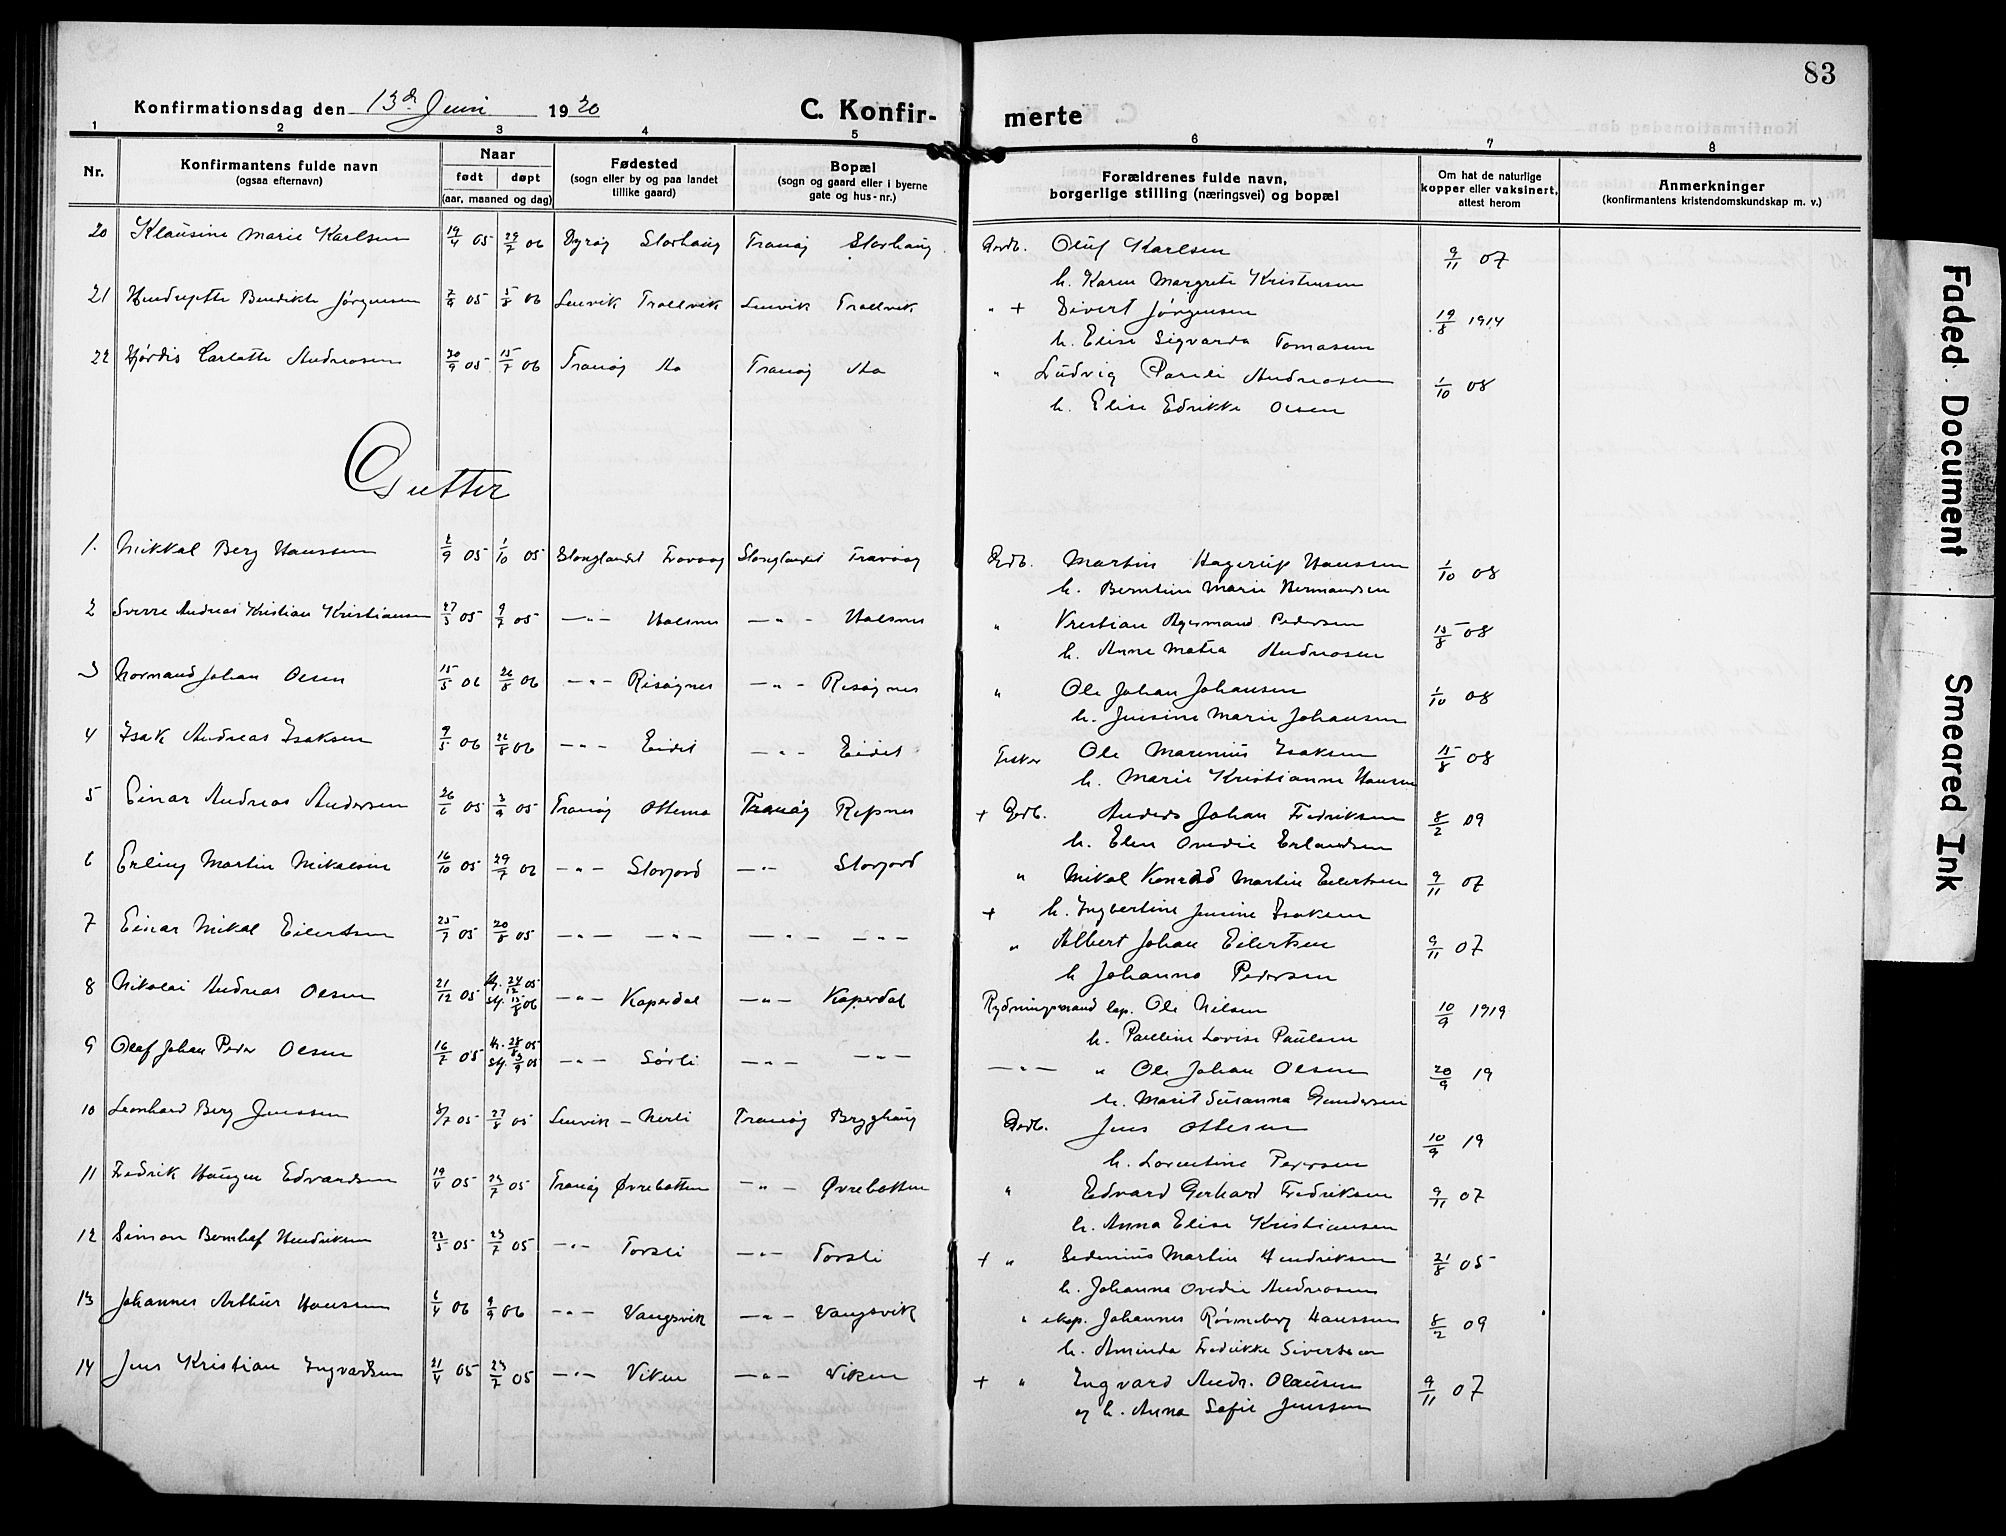 83
Konfirmationsdag den 13de Juni 1920
C. Konfir-
merte
1 2 3 4 5 6 7 8
Nr.
Konfirmantens fulde navn
(ogsaa efternavn)
Naar
født døpt
(aar, maaned og dag)
Fødested
(sogn eller by og paa landet
tillike gaard)
Bopæl
(sogn og gaard eller i byerne
gate og hus-nr.)
Forældrenes fulde navn,
borgerlige stilling (næringsvei) og bopæl
Om hat de naturlige
kopper eller vaksinert,
attest herom
Anmerkninger
(konfirmantens kristendomskundskap m. v.)
20 Klausine Marie Karlsen 19/4 05 29/7 06 Dyrøy Storhaug Tranøy Storhaug Gardb. Oluf Karlsen 9/11 07
h. Karen Margrete Kristensen
21 Bendikte Jørgensen 7/9 05 5/8 06 Lenvik Trollvik Lenvik Trollvik " + Sivert Jørgensen 19/8 1914
h. Elise Sigvarda Tomasen
22 Hjørdis Carlotte Andreasen 30/9 05 15/7 06 Tranøy Aa Tranøy Aa " Ludvig Andreasen 1/10 08
h. Elise Edrikke Olsen
Gutter
1. Mikkal Berg Hanssen 2/9 05 1/10 05 Stonglandet Stonglandet Gardb. Martin Hagerup Hanssen 1/10 08
h. Berntine Marie Hermandsen
2 Sverre Andreas Kristian Kristiansen 27/3 05 9/7 05 —"— Halsnes —"— Halsnes " Kristian Pedersen 15/8 08
h. Anne Matea Andreasen
3 Normand Johan Olsen 15/5 06 26/8 06 —"— Risøynes —"— Risøynes " Ole Johan Johansen 1/10 08
h. Jensine Marie Johansen
4 Isak Andreas Isaksen 9/5 06 26/8 06 —"— Eidet —"— Eidet Fisker Ole Marenius Isaksen 15/8 08
h. Marie Kristianne Hansen
5 Einar Andreas Andersen 26/6 05 3/9 05 Tranøy Tranøy Refsnes + Gardb. Anders Johan Fredriksen 8/2 09
h. Elen Ovedie Erlandsen
6 Erling Martin Mikalsen 16/10 05 29/7 06 —"— Storjord —"— Storjord " Mikal Konrad Martin Eilertsen 9/11 07
+ h. Ingbertine Jensine Isaksen
7 Einar Mikal Eilertsen 25/7 05 20/8 05 —"— —"— —"— —"— " Albert Johan Eilertsen 9/11 07
h Johanna Pedersen
8 Nikolai Andreas Olsen 21/12 05 24/12 05 —"— Kaperdal —"— Kaperdal Rydningsmand lap. Ole Nilsen 10/9 1919
h. Pauline Lovise Paulsen
9 Olaf Johan Peder Olsen 16/7 05 28/8 05 3/9 05 —"— Sørli —"— —"— —"— " Ole Johan Olsen 20/9 19
h. Marit Susanna Gundersen
10 Leonhard Berg Jenssen 8/7 05 27/8 05 Lenvik - Nerli Tranøy Brygghaug Gardb. Jens Ottesen 10/9 19
h. Lorentine Pedersen
11 Fredrik Haugen Edvardsen 19/4 05 23/7 05 Tranøy Øvrebotten —"— Øvrebotten " Edvard Gerhard Fredriksen 9/11 07
h. Anna Elise Kristiansen
12 Simon Bernhof Hendriksen 23/5 05 23/7 05 —"— Torsli —"— Torsli + " Sedenius Martin Hendriksen 21/8 05
h. Johanna Ovedie Andreasen
13 Johannes Arthur Hanssen 6/4 06 9/9 06 —"— Vangsvik —"— Vangsvik " Johannes Rønneberg Hanssen 8/2 09
h. Aminda Fredrikke Sivertsen
14 Jens Kristian Ingvardsen 21/4 05 23/7 05 —"— Viken —"— Viken + " Ingvard Andr. Olaussen 9/11 07
og h. Anna Sofie Jenssen
Faded Document
Smeared Ink